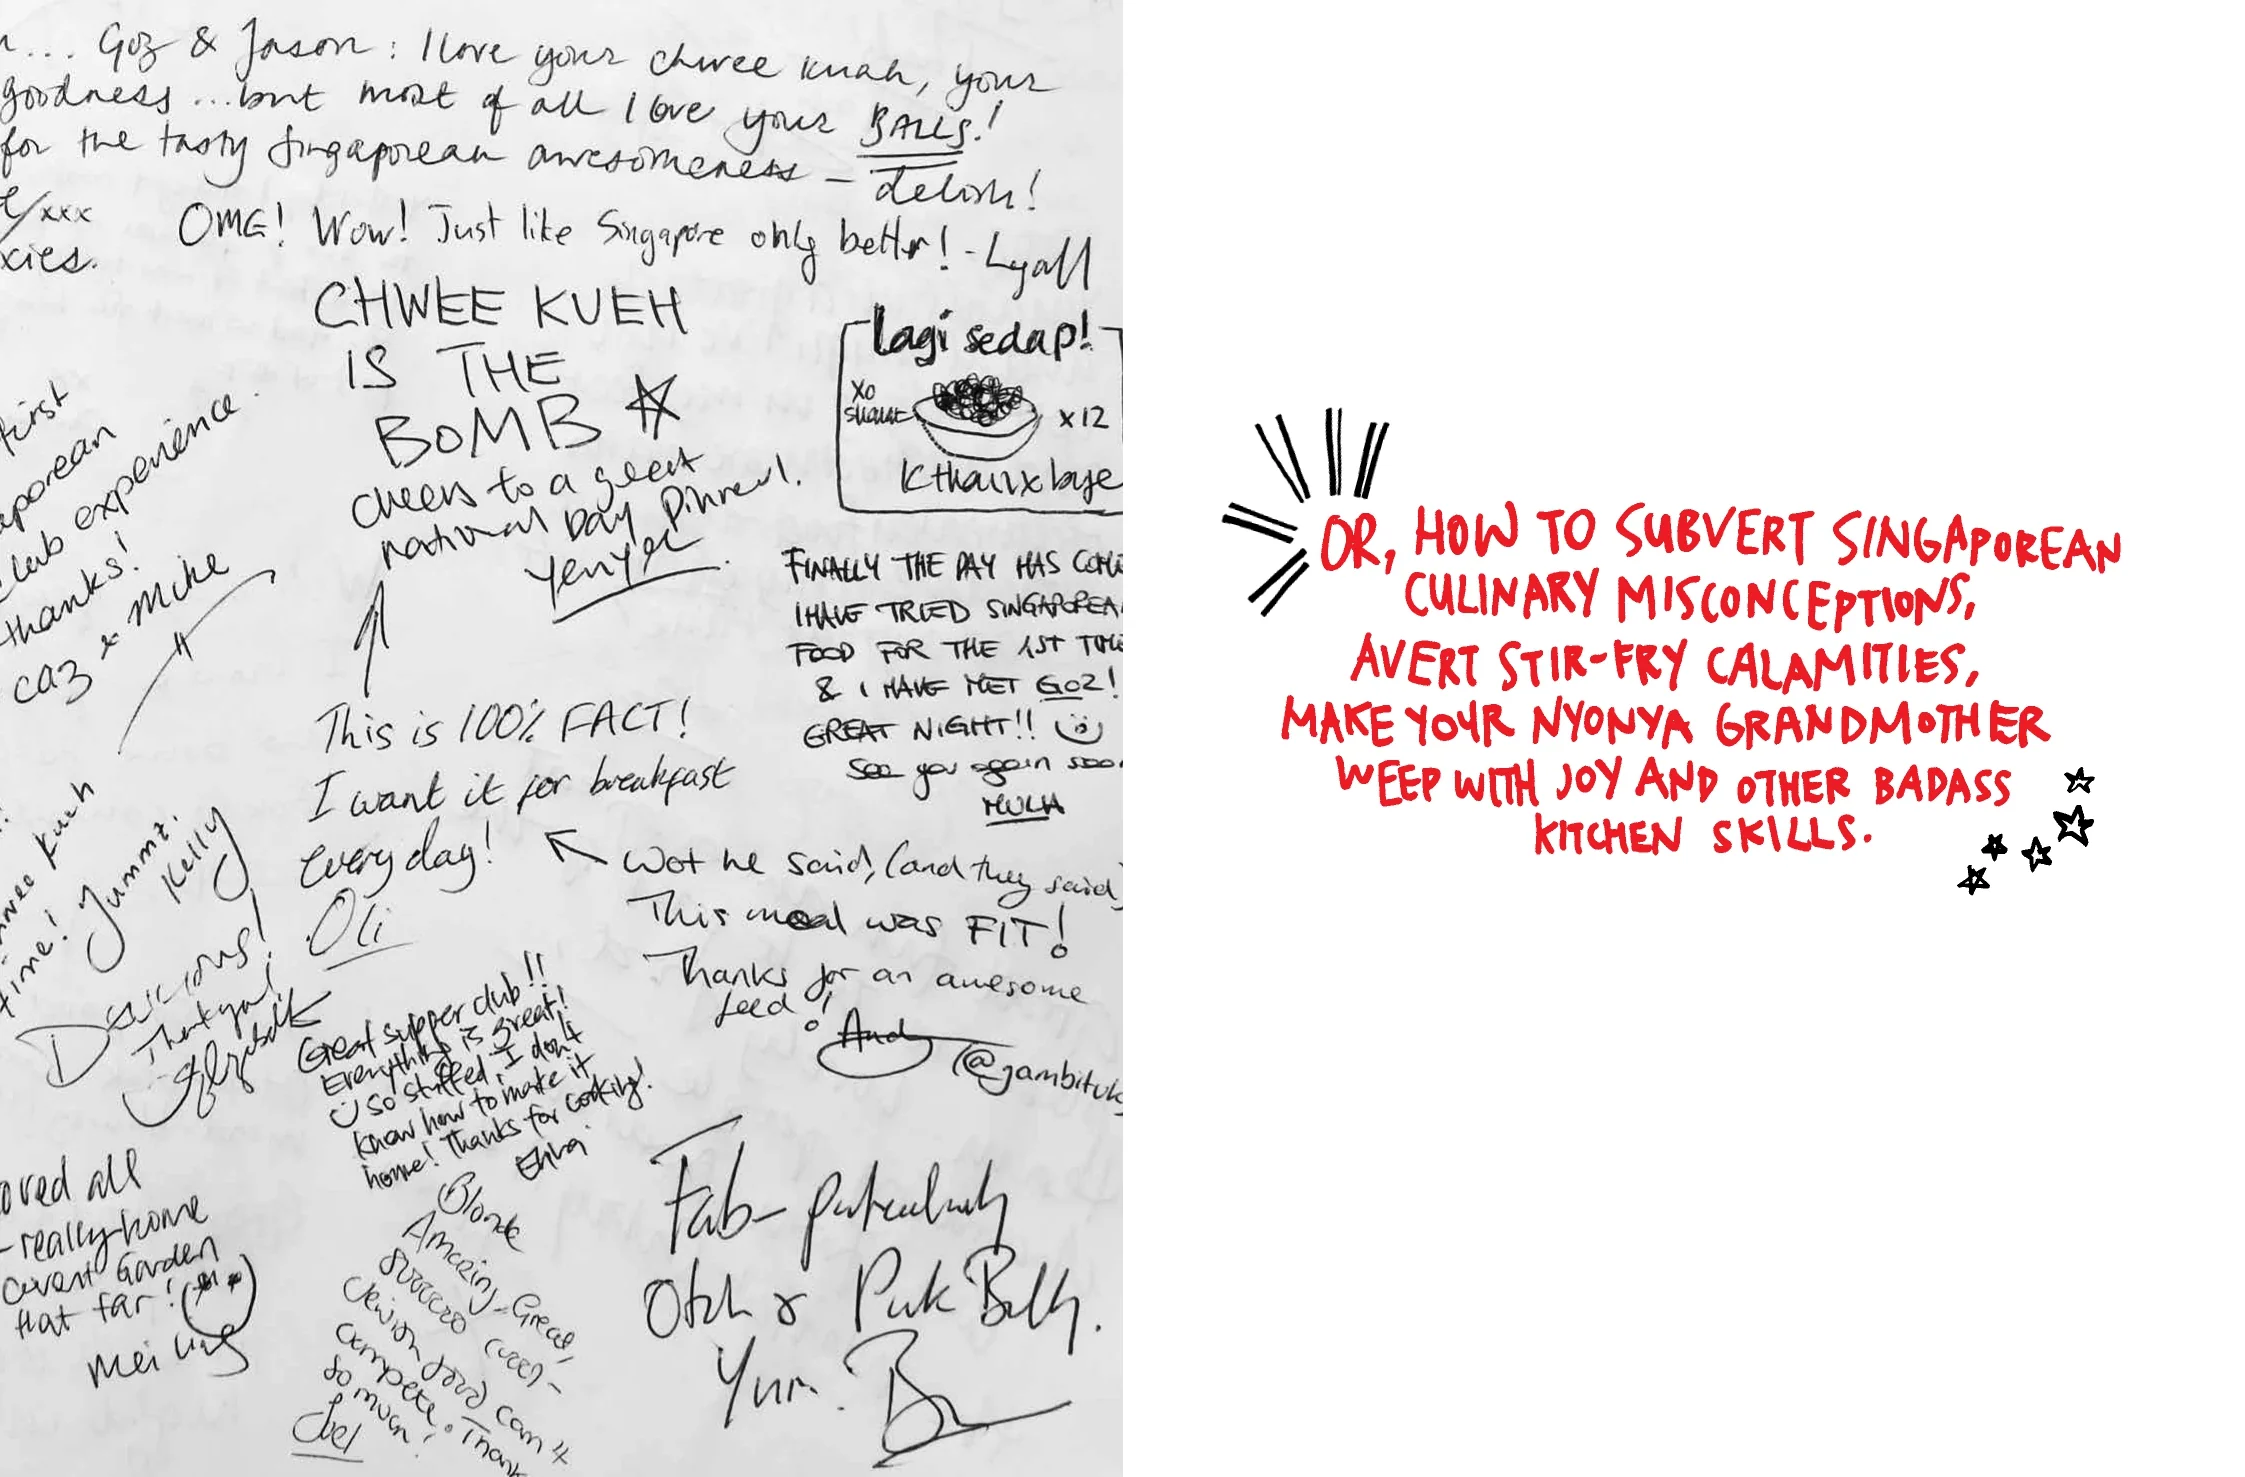 ... Goz & Jason : I love your chwee kuah, your
goodness ... but most of all I love your BALLS!
for the tasty Singaporean awesomeness – delish!
xxx
xies.
OMG! Wow! Just like Singapore only better! - Lyall
CHWEE KUEH
IS THE
BOMB
cheers to a great
national Day Dinner!
Yenyee
lagi sedap!
XO
x12
kthanxbye
first
aporean
club experience.
thanks!
caz & Mike
FINALLY THE DAY HAS COME
I HAVE TRIED SINGAPOREA
FOOD FOR THE 1ST TIME
& I HAVE MET GOZ!
GREAT NIGHT!!
See you again soon
This is 100% FACT!
I want it for breakfast
every day!
Oli
Kueh
time! Yummz.
Kelly
Wot he said, (and they said)
This meal was FIT!
Thanks for an awesome
feed!
Andy (@gambituk
Delicious!
Thank you!
Great supper club!!
Everything is great!
so stuffed. I don't
know how to make it
home! Thanks for cooking!
Elina
oved all
- really home
Covent Garden
flat far!
Mei
Blonde
Amazing, Great,
cool -
Jewish food can't
compete. Thank
so much!
Joel
Fab - particularly
Otah & Pork Belly.
Yum.
OR, HOW TO SUBVERT SINGAPOREAN
CULINARY MISCONCEPTIONS,
AVERT STIR-FRY CALAMITIES,
MAKE YOUR NYONYA GRANDMOTHER
WEEP WITH JOY AND OTHER BADASS
KITCHEN SKILLS.